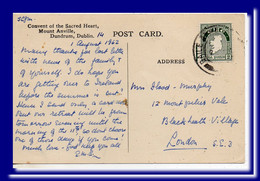 Convent of the Sacred Heart,
Mount Anville,
Dundrum, Dublin. 14
1 August 1962
Many thanks for last letter
with news of the family &
of yourself. I do hope you
are getting over to Ireland
before the summer is out.
Hence I send only a card
our retreat will be from
tomorrow evening until the
morning of the 11th so don't choose
one of those days if you come
much love - God keep you all
POST CARD
ADDRESS
Mrs Murphy
12 Montpelier Vale
Blackheath Village
London
S.E.3